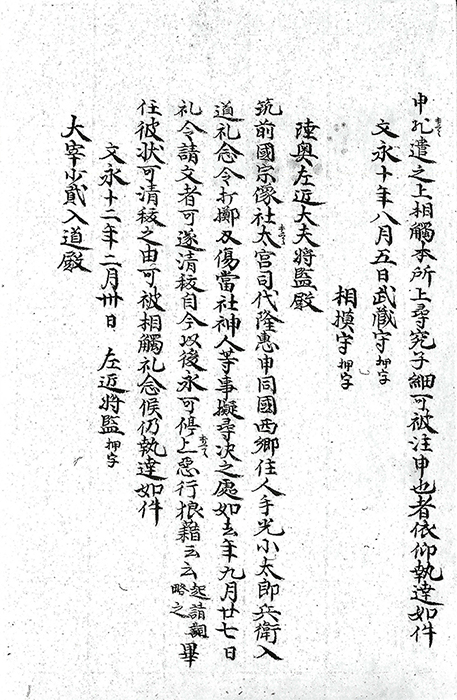 申旨遣之上相觸本所上尋究子細可被注申也者依仰執達如件
文永十年八月五日武藏守押字
相摸守押字
陸奥左近大夫將監殿
筑前國宗像社太官司代隆惠申同國西郷住人手光小太郎兵衛入
道礼念令打擲刃傷當社神人等事擬尋决之處如去年九月廿七日
礼念請文者可遂清祓自今以後永可停止惡行狼藉云云起請詞略之畢
任彼状可清祓之由可被相觸礼念候仍執達如件
文永十二年二月卅日 左近將監押字
大宰少貳入道殿